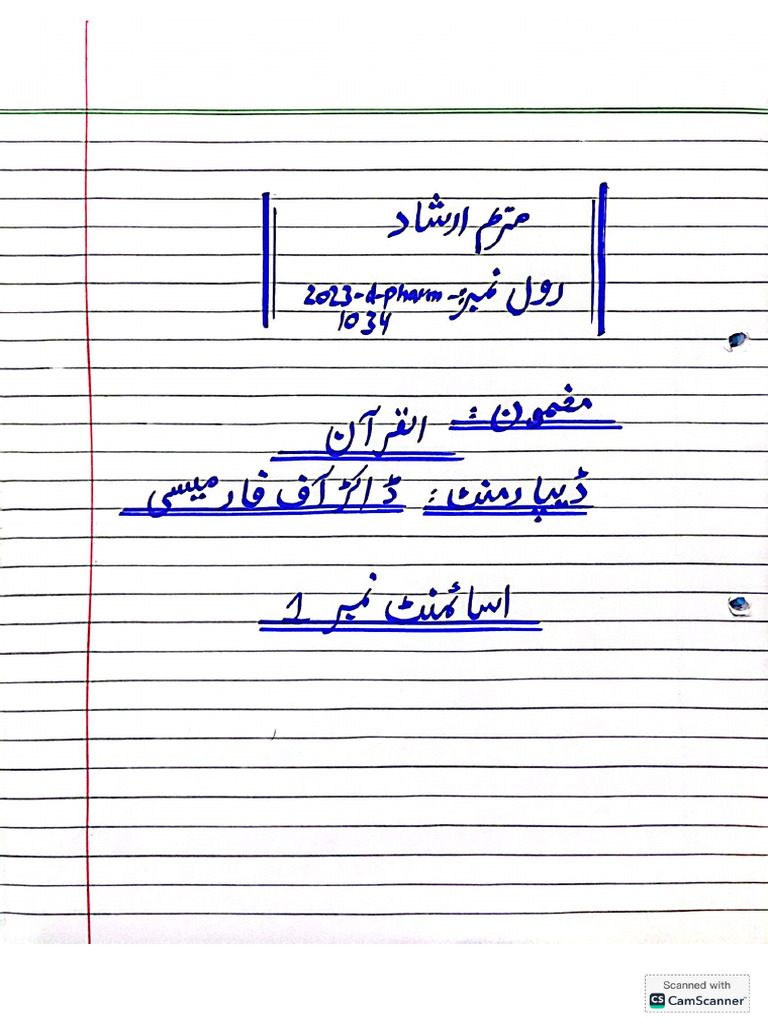 ارشاد
رول نمبر:- 2023-d-pharm
1034
مضمون : القرآن
ڈیپارمنٹ : ڈاکڑ آف فارمیسی
اسائمنٹ نمبر 1
Scanned with
CS CamScanner